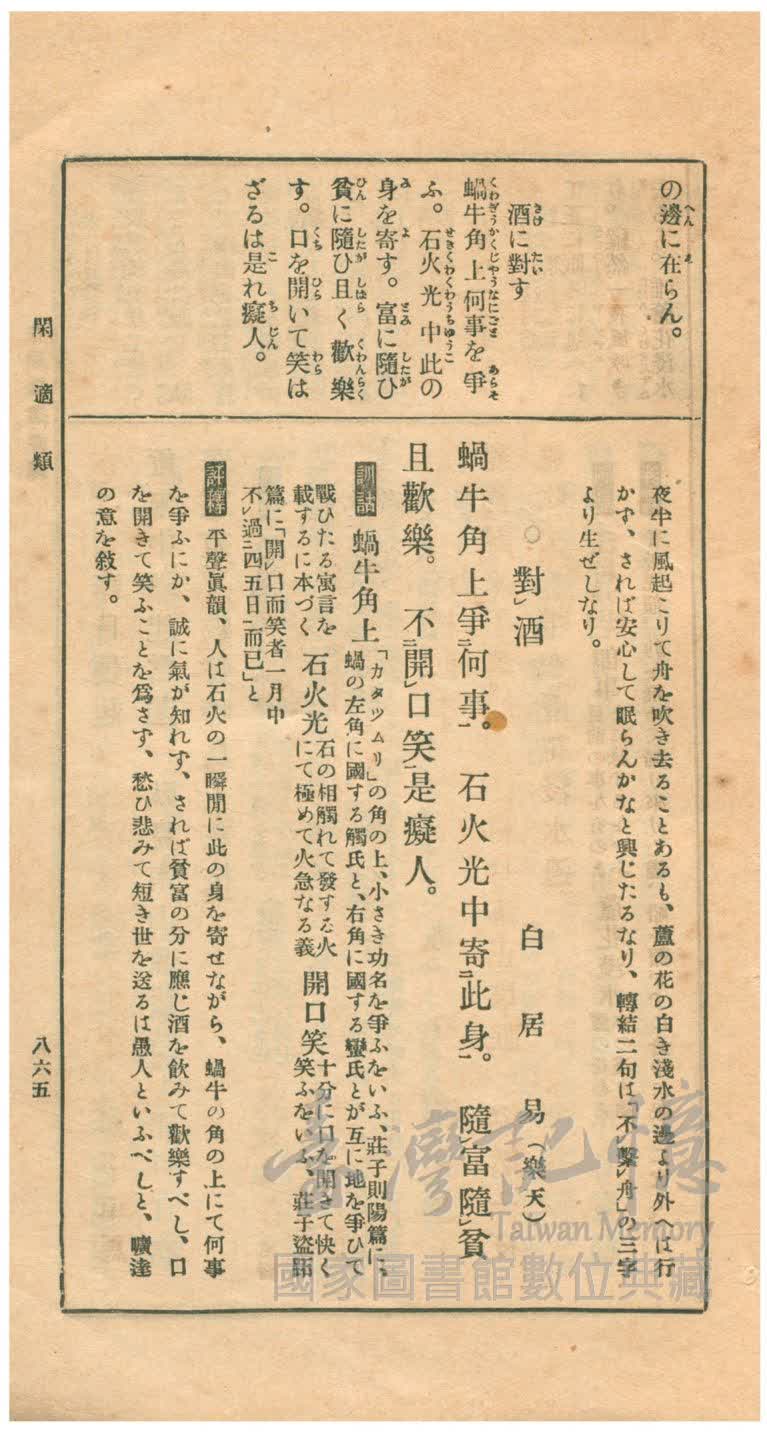 の邊に在らん。
酒に對す
蝸牛角上何事を爭
ふ。石火光中此の
身を寄す。富に隨ひ
貧に隨ひ且く歡樂
す。口を開いて笑は
ざるは是れ癡人。
夜半に風起こりて舟を吹き去ることあるも、蘆の花の白き淺水の邊より外へは行
かず、されば安心して眠らんかなと興じたるなり、轉結二句は「不㆑繫㆑舟」の三字
より生ぜしなり。
○對㆑酒 白居易(樂天)
蝸牛角上爭㆓何事㆒。石火光中寄㆓此身㆒。隨㆑富隨㆑貧
且歡樂。不㆓開㆑口笑㆒是癡人。
訓詁 蝸牛角上「カタツムリ」の角の上、小さき功名を爭ふをいふ、莊子則陽篇に、
蝸の左角に國する觸氏と、右角に國する蠻氏とが互に地を爭ひて
戰ひたる寓言を
載するに本づく 石火光 石の相觸れて發する火
にて極めて火急なる義 開口笑 十分に口を開きて快く
笑ふをいふ、莊子盜跖
篇に「開㆑口而笑者一月中
不㆑過㆓四五日㆒而已」と
評釋 平聲眞韻、人は石火の一瞬間に此の身を寄せながら、蝸牛の角の上にて何事
を爭ふにか、誠に氣が知れず、されば貧富の分に應じ酒を飲みて歡樂すべし、口
を開きて笑ふことを爲さず、愁ひ悲みて短き世を送るは愚人といふべしと、曠達
の意を敍す。
閑適類
八六五
臺灣記憶
Taiwan Memory
國家圖書館數位典藏